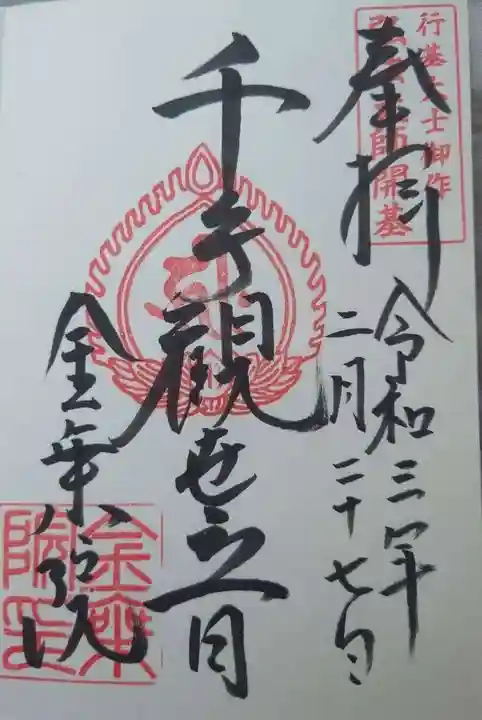 行基大士御作
弘法大師開基
奉拝
令和三年
二月二十七日
千手觀世音
金乗院
金乗
院印